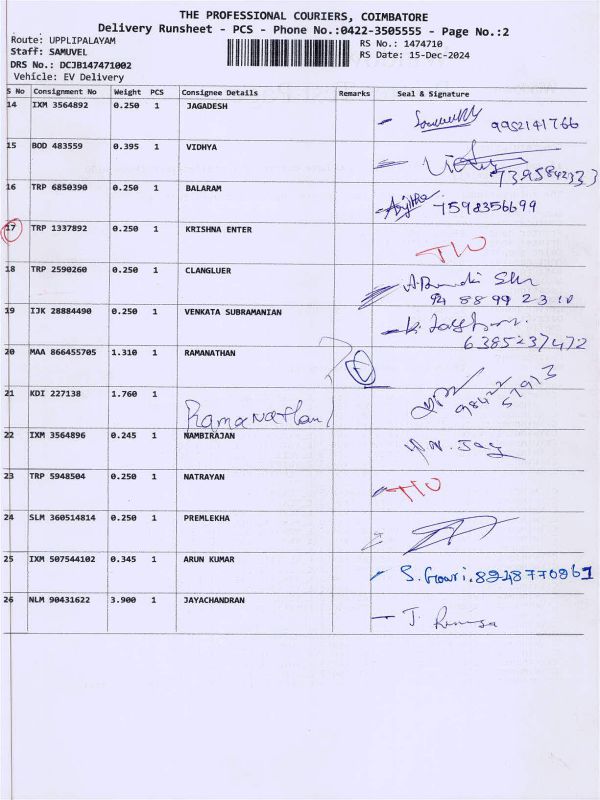 THE PROFESSIONAL COURIERS, COIMBATORE
Delivery Runsheet - PCS - Phone No.:0422-3505555 - Page No.:2
Route: UPPLIPALAYAM
Staff: SAMUVEL
DRS No.: DCJB147471002
Vehicle: EV Delivery
RS No.: 1474710
RS Date: 15-Dec-2024
S No Consignment No Weight PCS Consignee Details Remarks Seal & Signature
14 IXM 3564892 0.250 1 JAGADESH
9952141766
15 BOD 483559 0.395 1 VIDHYA
7395842333
16 TRP 6850390 0.250 1 BALARAM
7598356699
17 TRP 1337892 0.250 1 KRISHNA ENTER
18 TRP 2590260 0.250 1 CLANGLUER
19 IJK 28884490 0.250 1 VENKATA SUBRAMANIAN
6385237472
20 MAA 866455705 1.310 1 RAMANATHAN
21 KDI 227138 1.760 1
Ramanathan
22 IXM 3564896 0.245 1 NAMBIRAJAN
23 TRP 5948504 0.250 1 NATRAYAN
24 SLM 360514814 0.250 1 PREMLEKHA
25 IXM 507544102 0.345 1 ARUN KUMAR
S. Gowri. 8948770861
26 NLM 90431622 3.900 1 JAYACHANDRAN